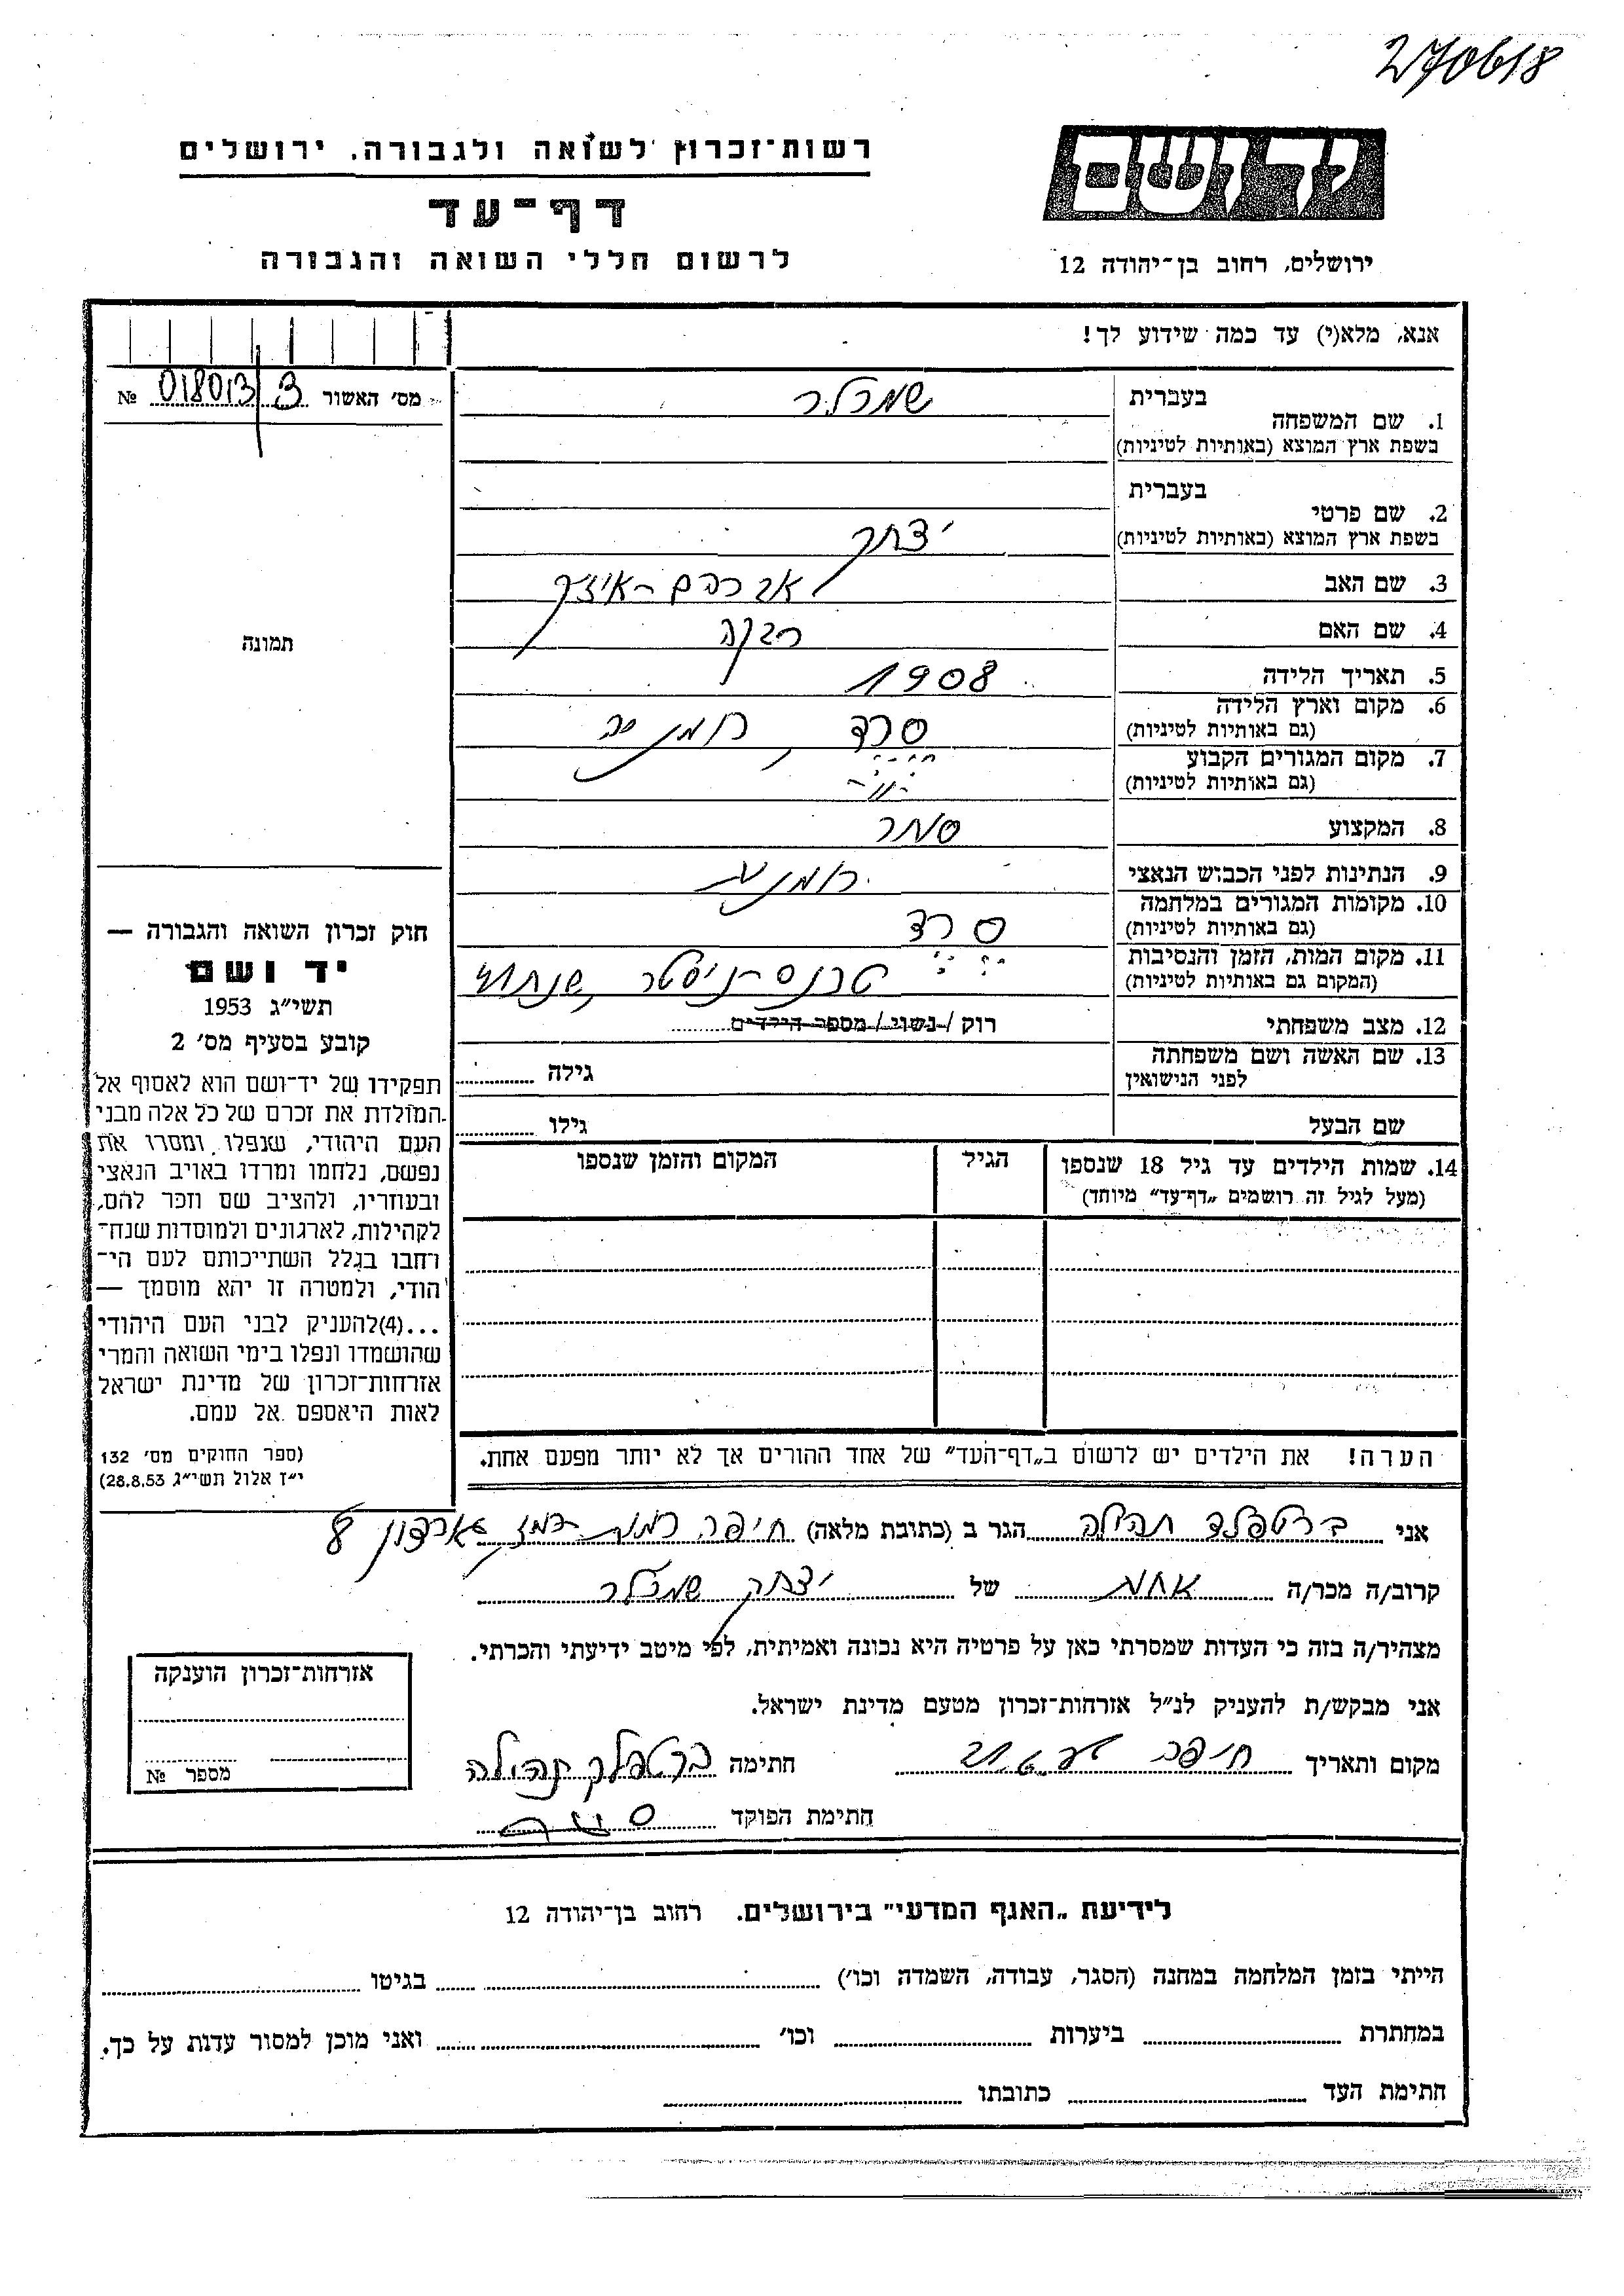 270618
רשות־זכרון לשואה ולגבורה. ירושלים
דף־עד
לרשום חללי השואה והגבורה
יד ושם
ירושלים, רחוב בן־יהודה 12
אנא, מלא(י) עד כמה שידוע לך!
מס׳ האשור 018013/3 №
בעברית
1. שם המשפחה
בשפת ארץ המוצא (באותיות לטיניות)
שמרלר
בעברית
2. שם פרטי
בשפת ארץ המוצא (באותיות לטיניות)
יצחק
3. שם האב אברהם-איזיק
4. שם האם רבקה
5. תאריך הלידה 1908
6. מקום וארץ הלידה סרד, רומניה
(גם באותיות לטיניות)
7. מקום המגורים הקבוע -"-
(גם באותיות לטיניות)
8. המקצוע סוחר
9. הנתינות לפני הכבוש הנאצי רומנית
10. מקומות המגורים במלחמה סרד
(גם באותיות לטיניות)
11. מקום המות, הזמן והנסיבות טרנס-ניסטר,
(המקום גם באותיות לטיניות)
12. מצב משפחתי רוק / נשוי / מספר הילדים
13. שם האשה ושם משפחתה גילה
לפני הנישואין
שם הבעל גילו
14. שמות הילדים עד גיל 18 שנספו הגיל המקום והזמן שנספו
(מעל לגיל זה רושמים „דף־עד״ מיוחד)
הערה! את הילדים יש לרשום ב„דף־העד״ של אחד ההורים אך לא יותר מפעם אחת.
תמונה
חוק זכרון השואה והגבורה —
יד ושם
תשי״ג 1953
קובע בסעיף מס׳ 2
תפקידו של יד־ושם הוא לאסוף אל
המולדת את זכרם של כל אלה מבני
העם היהודי, שנפלו ומסרו את
נפשם, נלחמו ומרדו באויב הנאצי
ובעוזריו, ולהציב שם וזכר להם,
לקהילות, לארגונים ולמוסדות שנח־
רחבו בגלל השתייכותם לעם הי־
הודי, ולמטרה זו יהא מוסמך —
...(4)להעניק לבני העם היהודי
שהושמדו ונפלו בימי השואה והמרי
אזרחות־זכרון של מדינת ישראל
לאות היאספם אל עמם.
(ספר החוקים מס׳ 132
י״ז אלול תשי״ג 28.8.53)
אני ברטפלד תהילה הגר ב (כתובת מלאה) חיפה רמת רמז גורדון 8
קרוב/ה מכר/ה אחות של יצחק שמרלר
מצהיר/ה בזה כי העדות שמסרתי כאן על פרטיה היא נכונה ואמיתית, לפי מיטב ידיעתי והכרתי.
אני מבקש/ת להעניק לנ״ל אזרחות־זכרון מטעם מדינת ישראל.
מקום ותאריך חיפה חתימה ברטפלד תהילה
חתימת הפוקד
אזרחות־זכרון הוענקה
מספר №
לידיעת „האגף המדעי״ בירושלים. רחוב בן־יהודה 12
הייתי בזמן המלחמה במחנה (הסגר, עבודה, השמדה וכו׳) בגיטו
במחתרת ביערות וכו׳ ואני מוכן למסור עדות על כך.
חתימת העד כתובתו